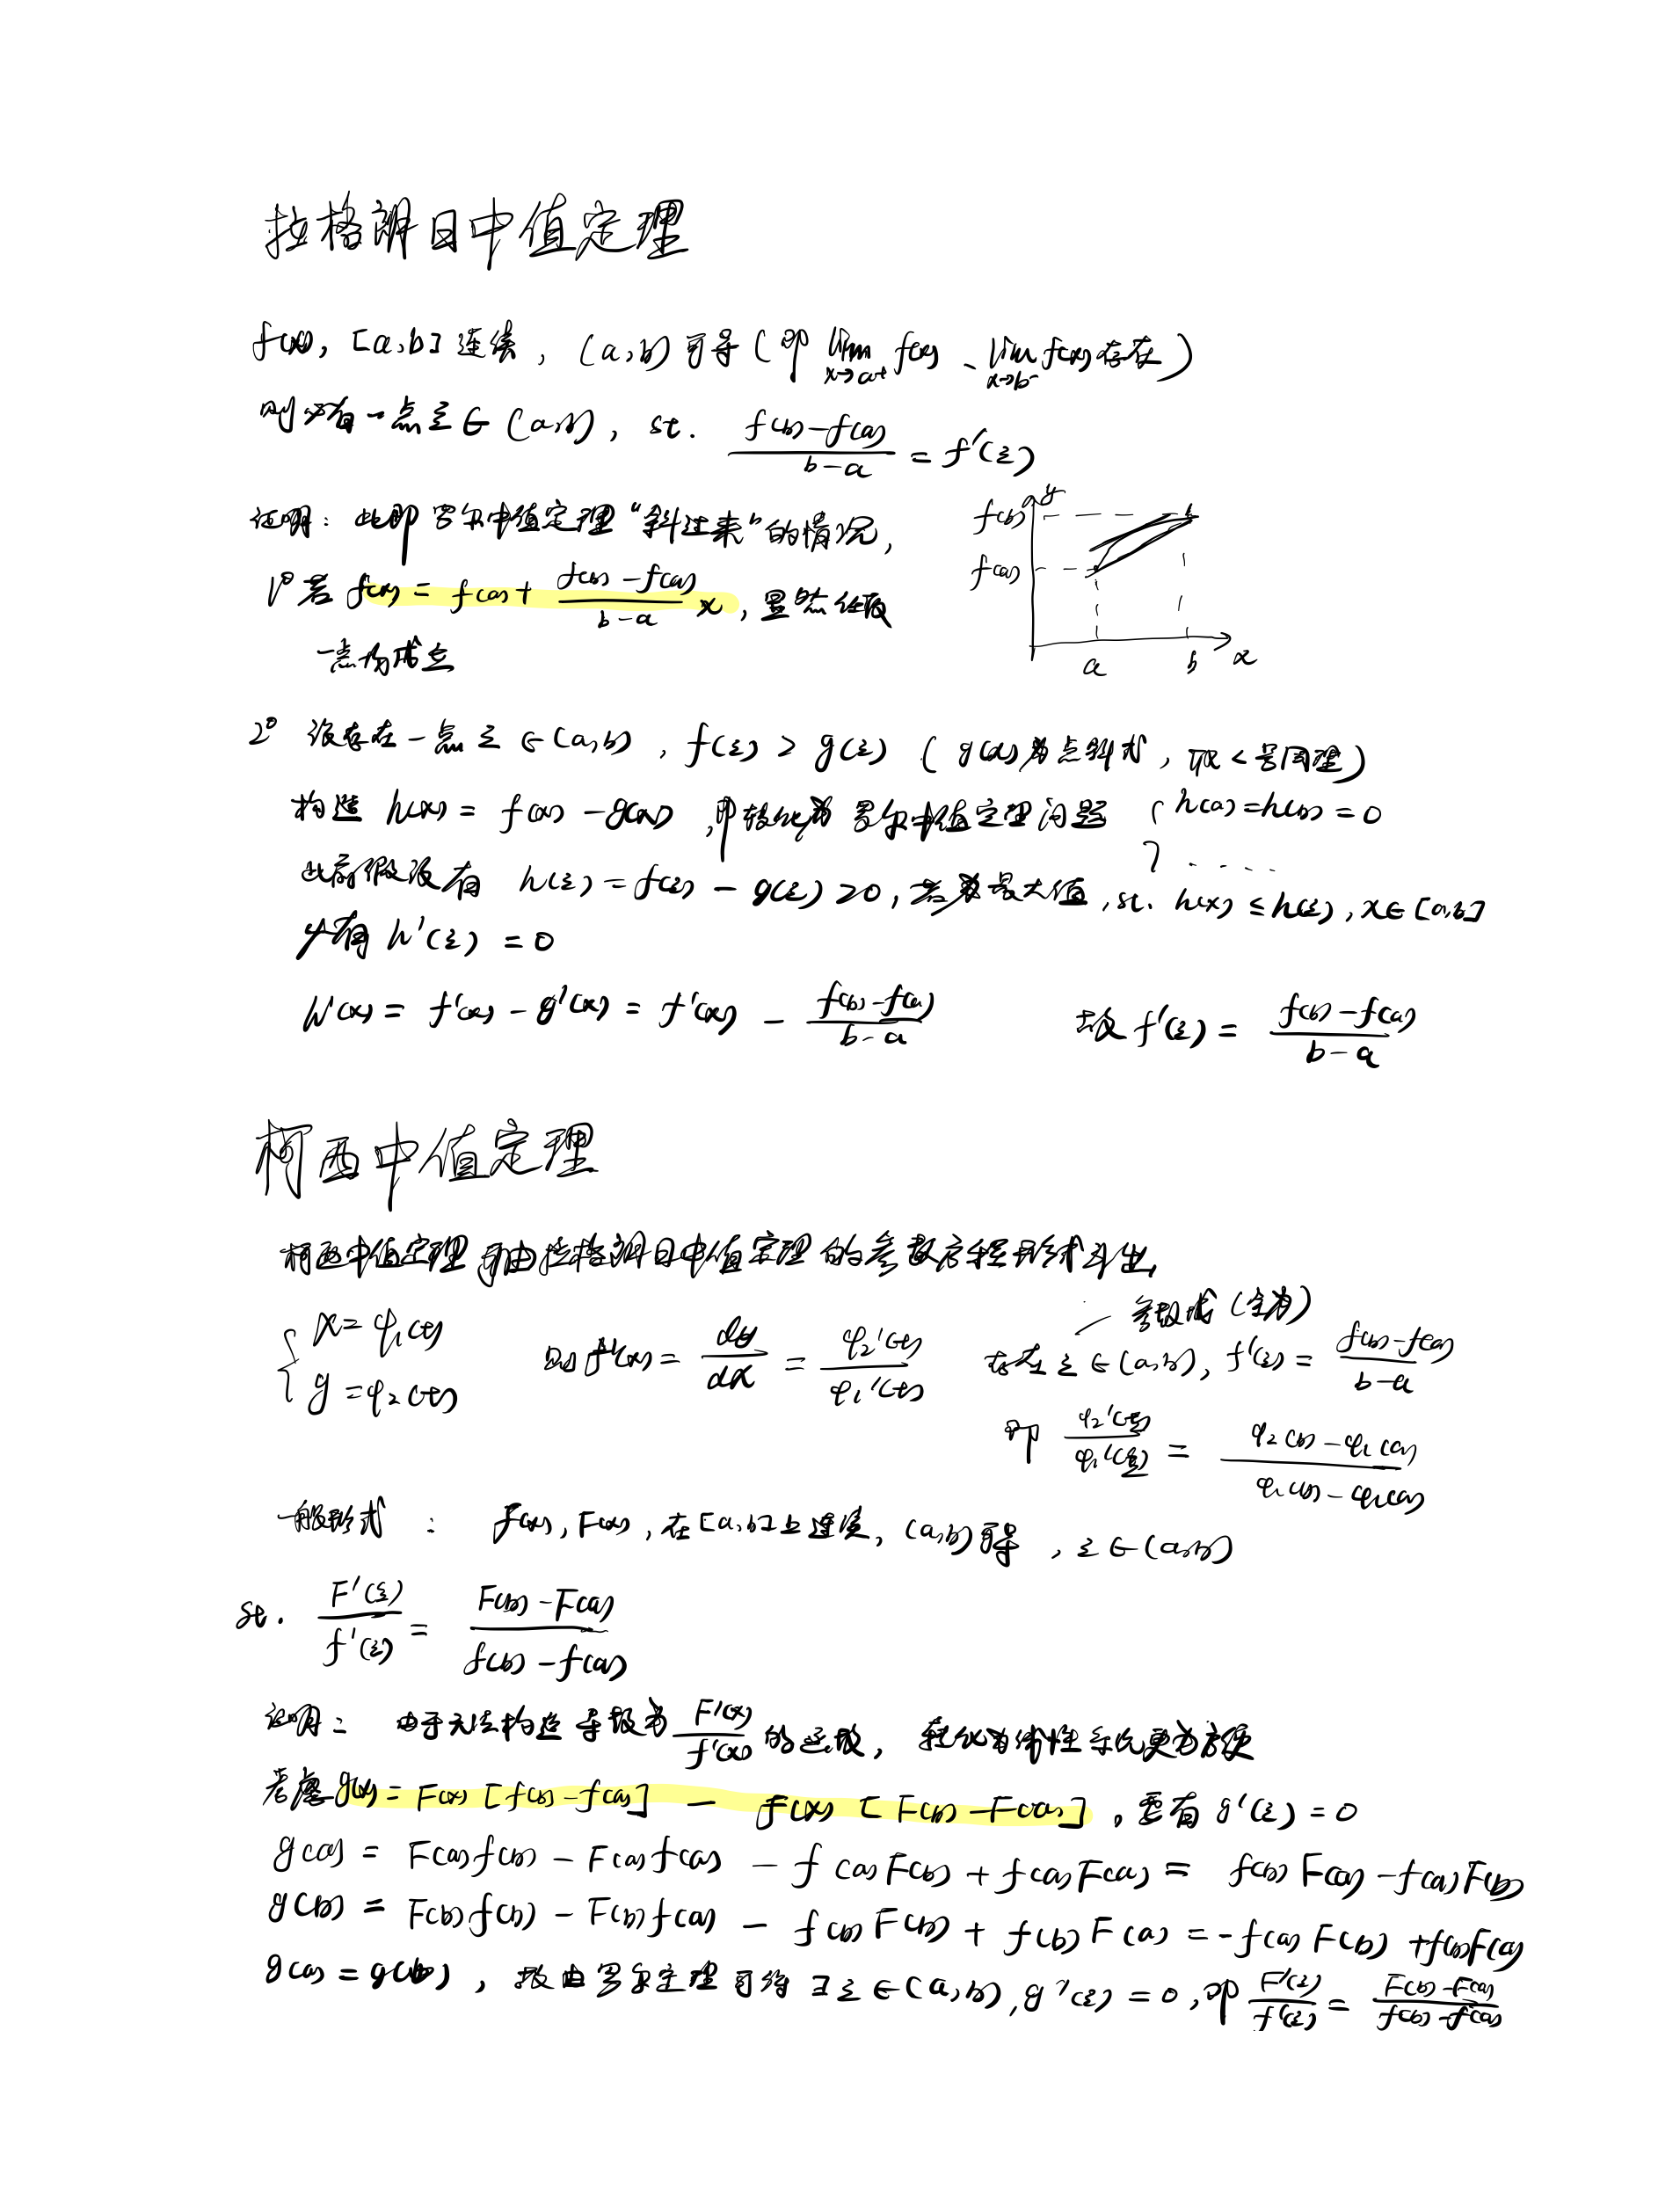 拉格朗日中值定理
f(x), [a,b]连续, (a,b)可导(即 lim x→a+ f(x)、lim x→b- f(x)存在)
则必有一点ξ∈(a,b), st. (f(b)-f(a))/(b-a) = f'(ξ)
证明: 此即罗尔中值定理“斜过来”的情况,
1° 若 f(x) = f(a)+ (f(b)-f(a))/(b-a) x, 显然任取
一点均成立
y
f(b)
f(a)
a b x
2° 设存在一点ξ∈(a,b), f(ξ) > g(ξ) ( g(x)为点斜式, 取<号同理)
构造 h(x) = f(x) - g(x), 即转化为罗尔中值定理问题 { h(a)=h(b)=0
. . . . .
此前假设有 h(ξ)=f(ξ) - g(ξ)>0, 若为最大值, st. h(x) ≤ h(ξ), x∈[a,b]
必有 h'(ξ) = 0
h'(x) = f'(x) - g'(x) = f'(x) - (f(b)-f(a))/(b-a) 故 f'(ξ) = (f(b)-f(a))/(b-a)
柯西中值定理
柯西中值定理可由拉格朗日中值定理的参数方程形式引出,
{ x = φ₁(t)
y = φ₂(t)
则 f'(x) = dy/dx = φ₂'(t)/φ₁'(t)
参数式(全为)
存在ξ∈(a,b), f'(ξ) = (f(b)-f(a))/(b-a)
即 φ₂'(ξ)/φ₁'(ξ) = (φ₂(b)-φ₂(a))/(φ₁(b)-φ₁(a))
一般形式 : f(x), F(x), 在[a,b]上连续, (a,b)可导, ξ∈(a,b)
st. F'(ξ)/f'(ξ) = (F(b)-F(a))/(f(b)-f(a))
证明: 由于无法构造导数为 F'(x)/f'(x) 的函数, 转化为线性系统更为方便
考虑g(x) = F(x) [f(b)-f(a)] - f(x) [F(b)-F(a)], 要有 g'(ξ) = 0
g(a) = F(a)f(b) - F(a)f(a) - f(a)F(b) + f(a)F(a) = f(b)F(a) - f(a)F(b)
g(b) = F(b)f(b) - F(b)f(a) - f(b)F(b) + f(b)F(a) = -f(a)F(b) + f(b)F(a)
g(a) = g(b), 故由罗尔定理可得∃ξ∈(a,b), g'(ξ) = 0, 即 F'(ξ)/f'(ξ) = (F(b)-F(a))/(f(b)-f(a))